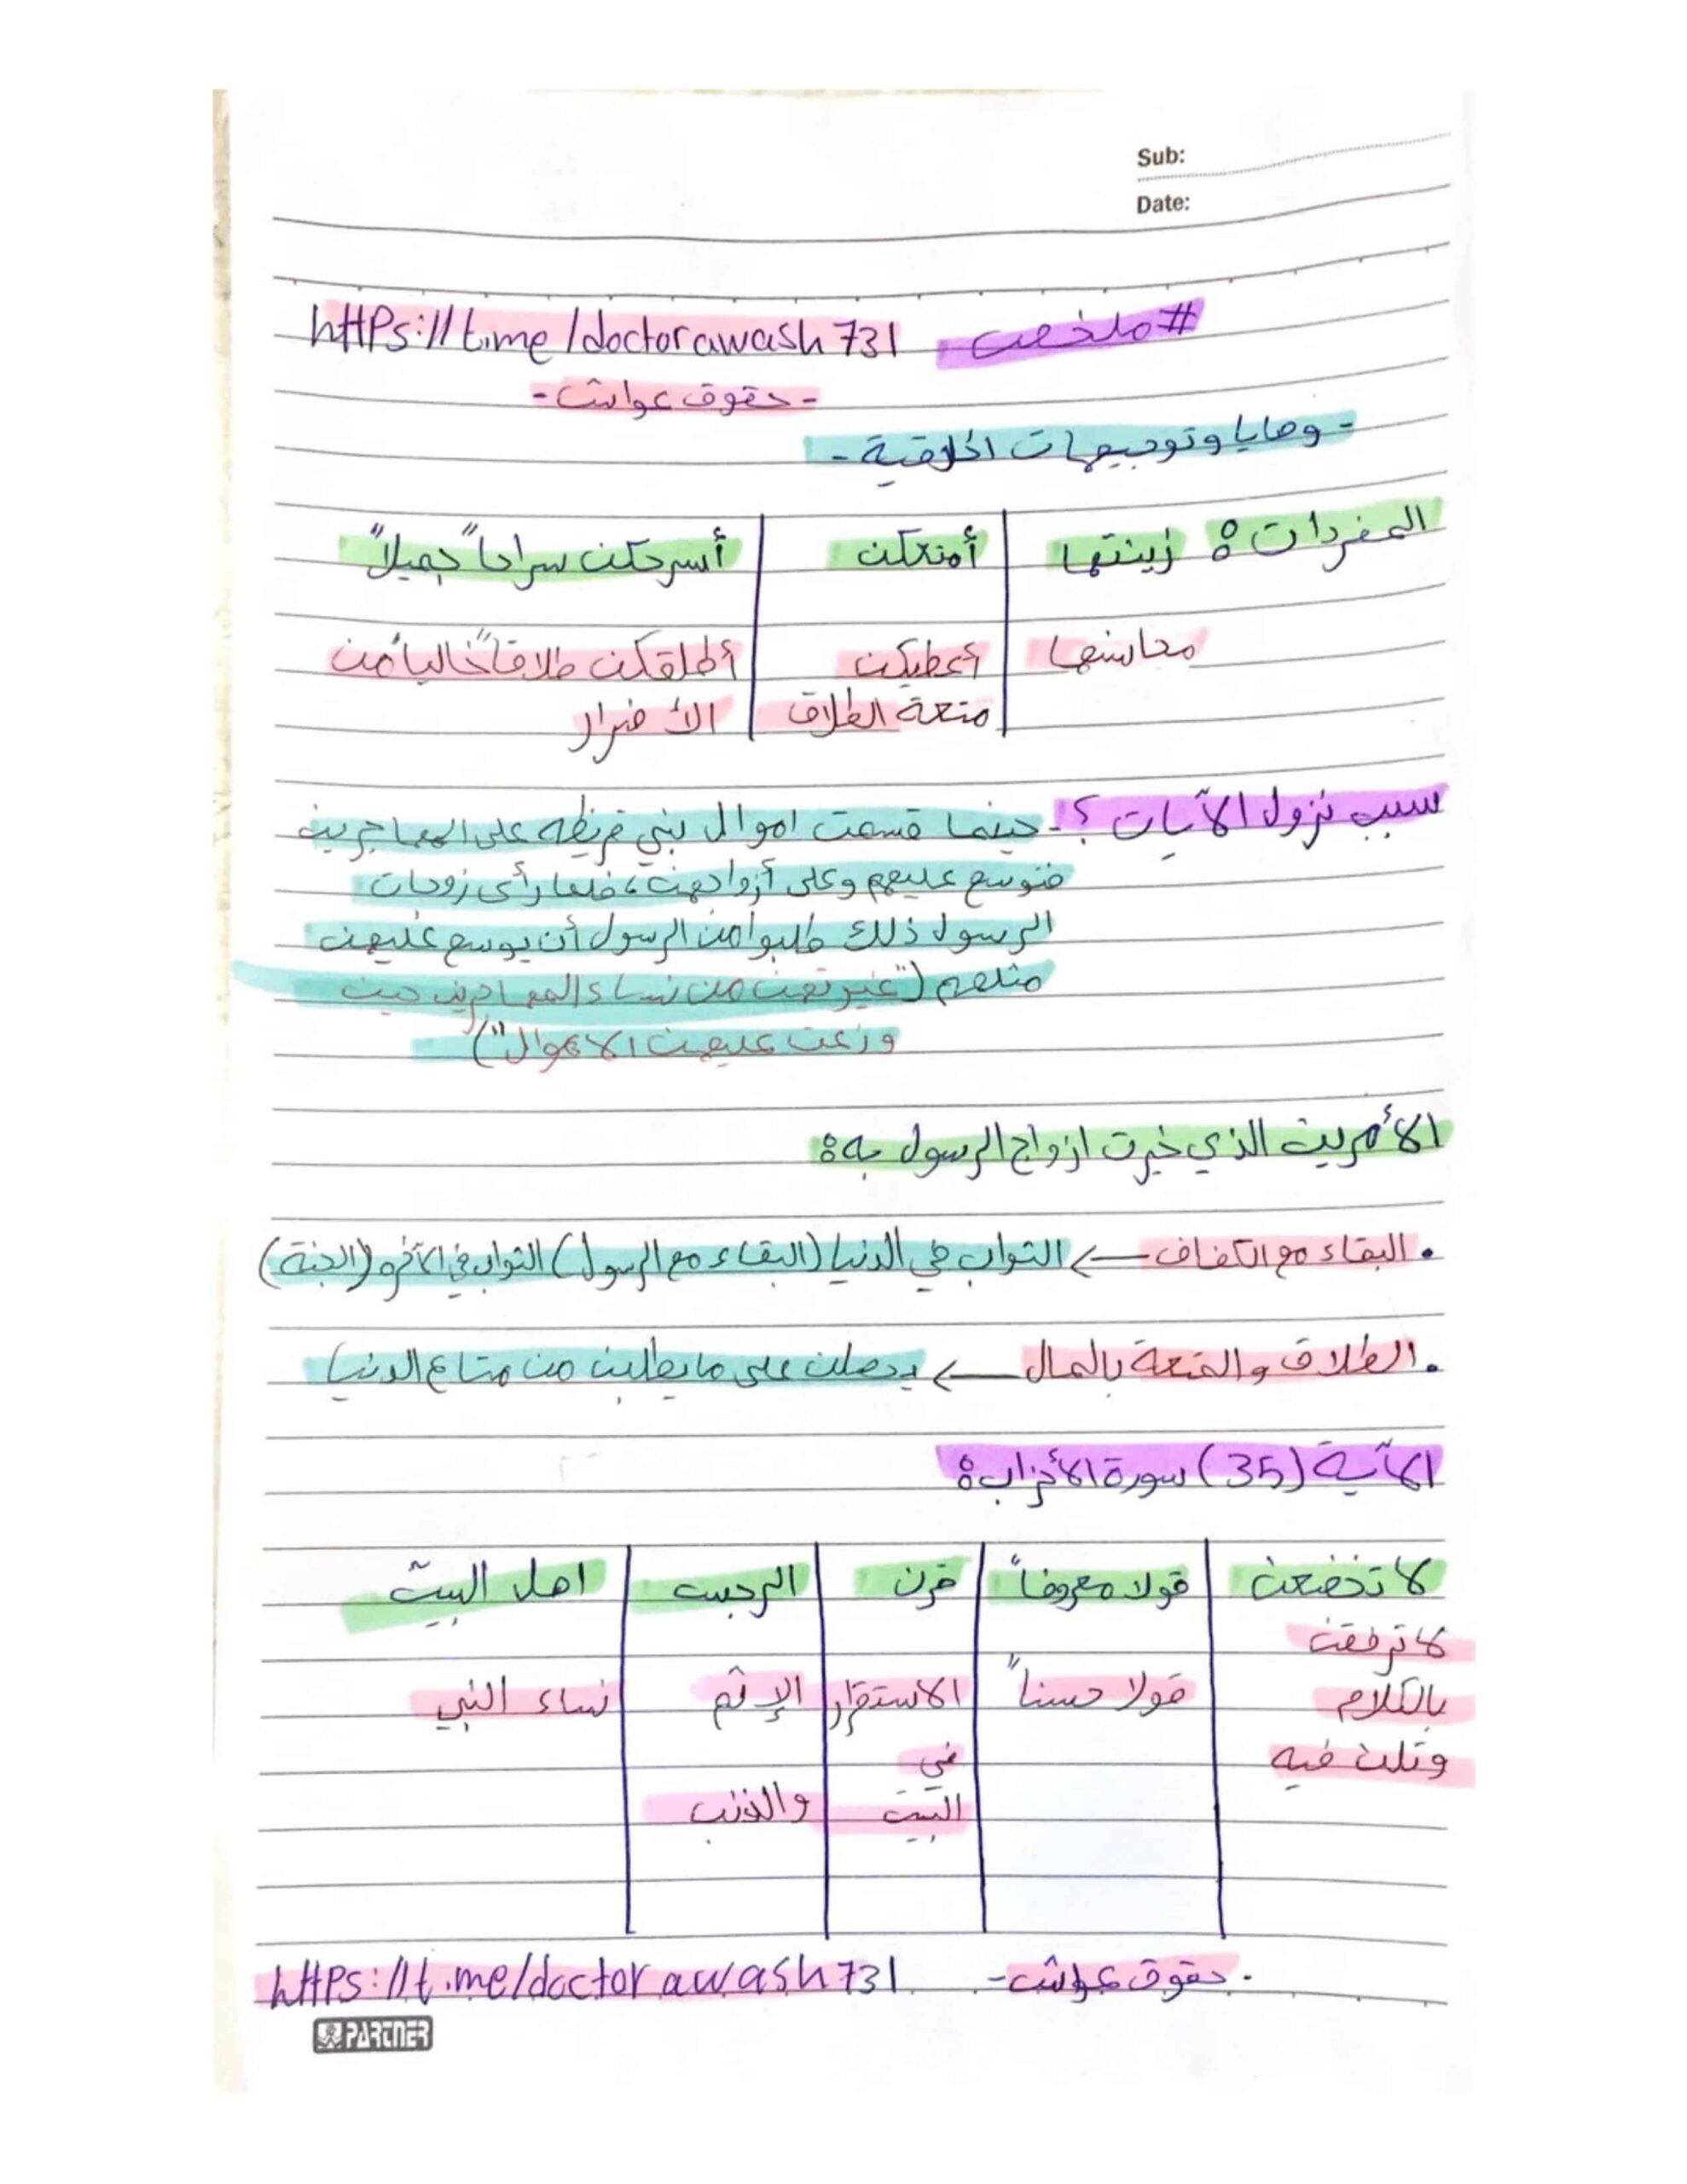 Sub:
Date:
#ملخص https://t.me/doctorawash731
-حقوق عواش-
-وصايا وتوجيهات اخلاقية-
المفردات: زينتها | أمتعكن | أسرحكن سراحاً "جميلاً"
محاسنها | أعطيكن | أطلقكن طلاقاً "خالياً" من
متعة الطلاق | الأضرار
سبب نزول الآيات ؟ - حينما قسمت اموال بني قريظه على المهاجرين
فتوسع عليهم وعلى أزواجهن، فلما رأى زوجات
الرسول ذلك طلبوا من الرسول أن يوسع عليهن
مثلهم ("غيرتهن من نساء المهاجرين حين
وزعت عليهن الاموال")
الأمرين الذي خيرت ازواج الرسول به:
• البقاء مع الكفاف ← الثواب في الدنيا (البقاء مع الرسول) الثواب في الآخرة (الجنة)
• الطلاق والمتعة بالمال ← يحصلن على ما يطلبن من متاع الدنيا
الآية (35) سورة الأحزاب:
لا تخضعن | قولا معروفاً | قرن | الرجس | اهل البيت
لا ترفقن
بالكلام | قولا حسناً | الاستقرار | الإثم | نساء النبي
وتلن فيه | في
البيت | والذنب
- حقوق عواش - https://t.me/doctorawash731
PARTNER